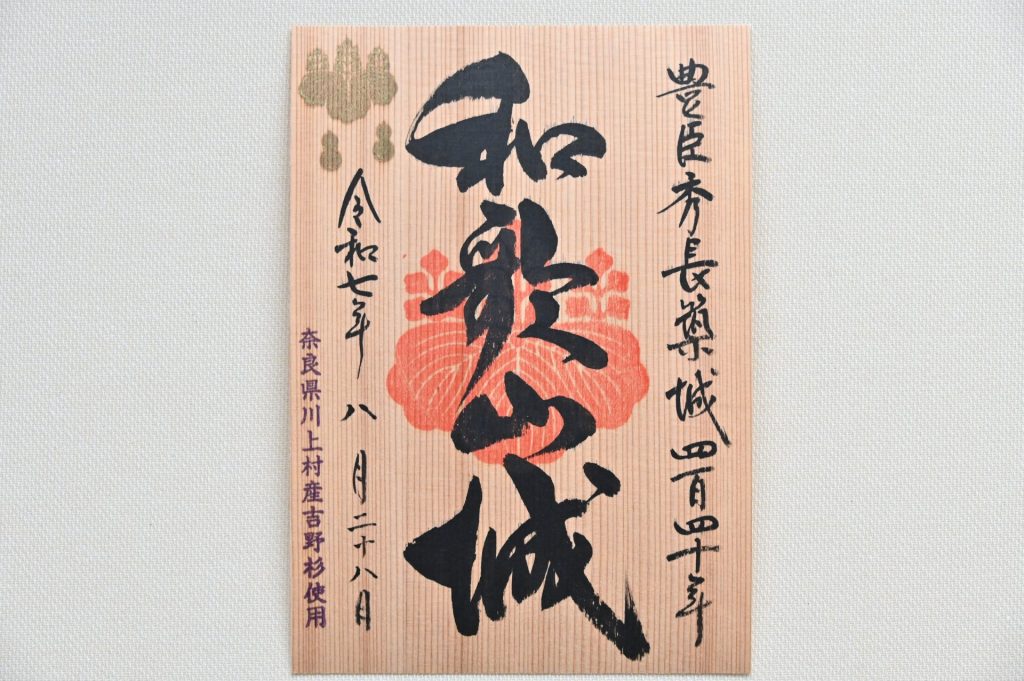 豊臣秀長築城四百四十年
和歌山城
令和七年八月二十八月
奈良県川上村産吉野杉使用